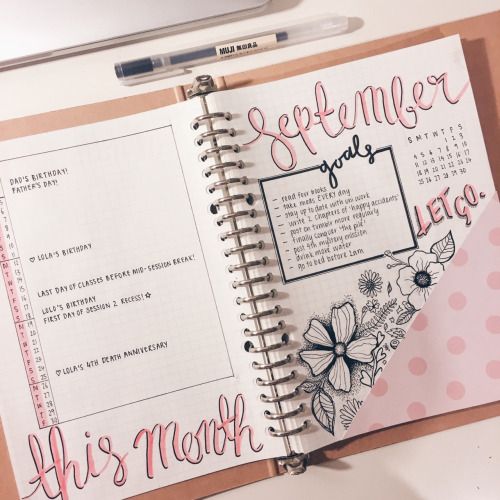 MUJI 無印良品
DAD'S BIRTHDAY!
FATHER'S DAY!
♡ LOLA'S BIRTHDAY
LAST DAY OF CLASSES BEFORE MID-SESSION BREAK!
LOLO'S BIRTHDAY
FIRST DAY OF SESSION 2 RECESS! ☆
♡ LOLA'S 4TH DEATH ANNIVERSARY
this month
September
goals
read four books
take meds EVERY day
stay up to date with uni work
write 2 chapters of 'happy accidents'
post on tumblr more regularly
finally conquer 'the pile'
post 4th mystrory mission
drink more water
go to bed before 2am
S M T W T F S
1 2 3
4 5 6 7 8 9 10
11 12 13 14 15 16 17
18 19 20 21 22 23 24
25 26 27 28 29 30
LET GO.